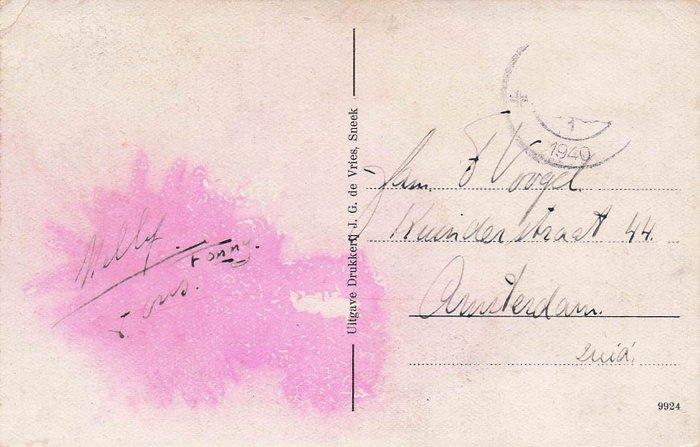 Nelly.
Fonny.
Fons.
Uitgave Drukkerij J. G. de Vries, Sneek
1
1940
Fam. F Voogel.
Kuinderstraat 44.
Amsterdam.
zuid.
9924